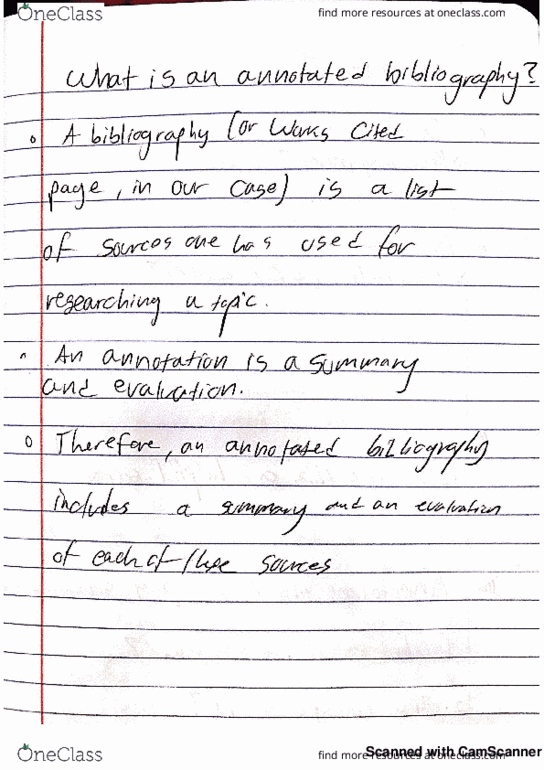 OneClass
find more resources at oneclass.com
What is an annotated bibliography?
A bibliography (or Works Cited
page, in our case) is a list
of sources one has used for
researching a topic.
An annotation is a summary
and evaluation.
Therefore, an annotated bibliography
includes a summary and an evaluation
of each of these sources
OneClass
find more resources at oneclass.com
Scanned with CamScanner